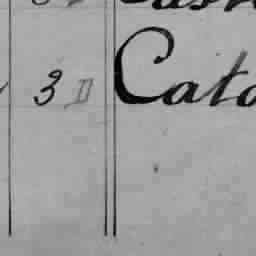 3 II Cato